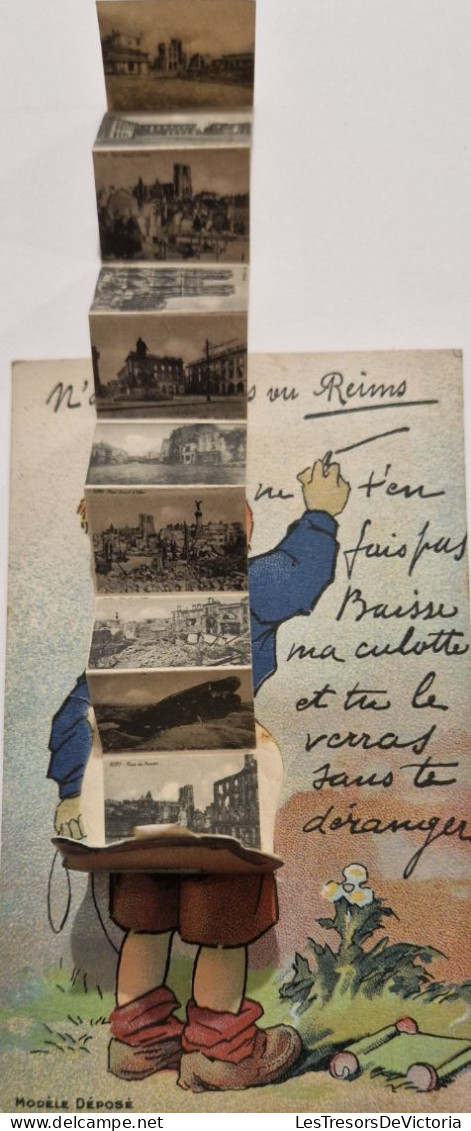 N'a s vu Reims
ne t'en
fais pas
Baisse
ma culotte
et tu le
verras
sans te
déranger
MODÈLE DÉPOSÉ
LesTresorsDeVictoria